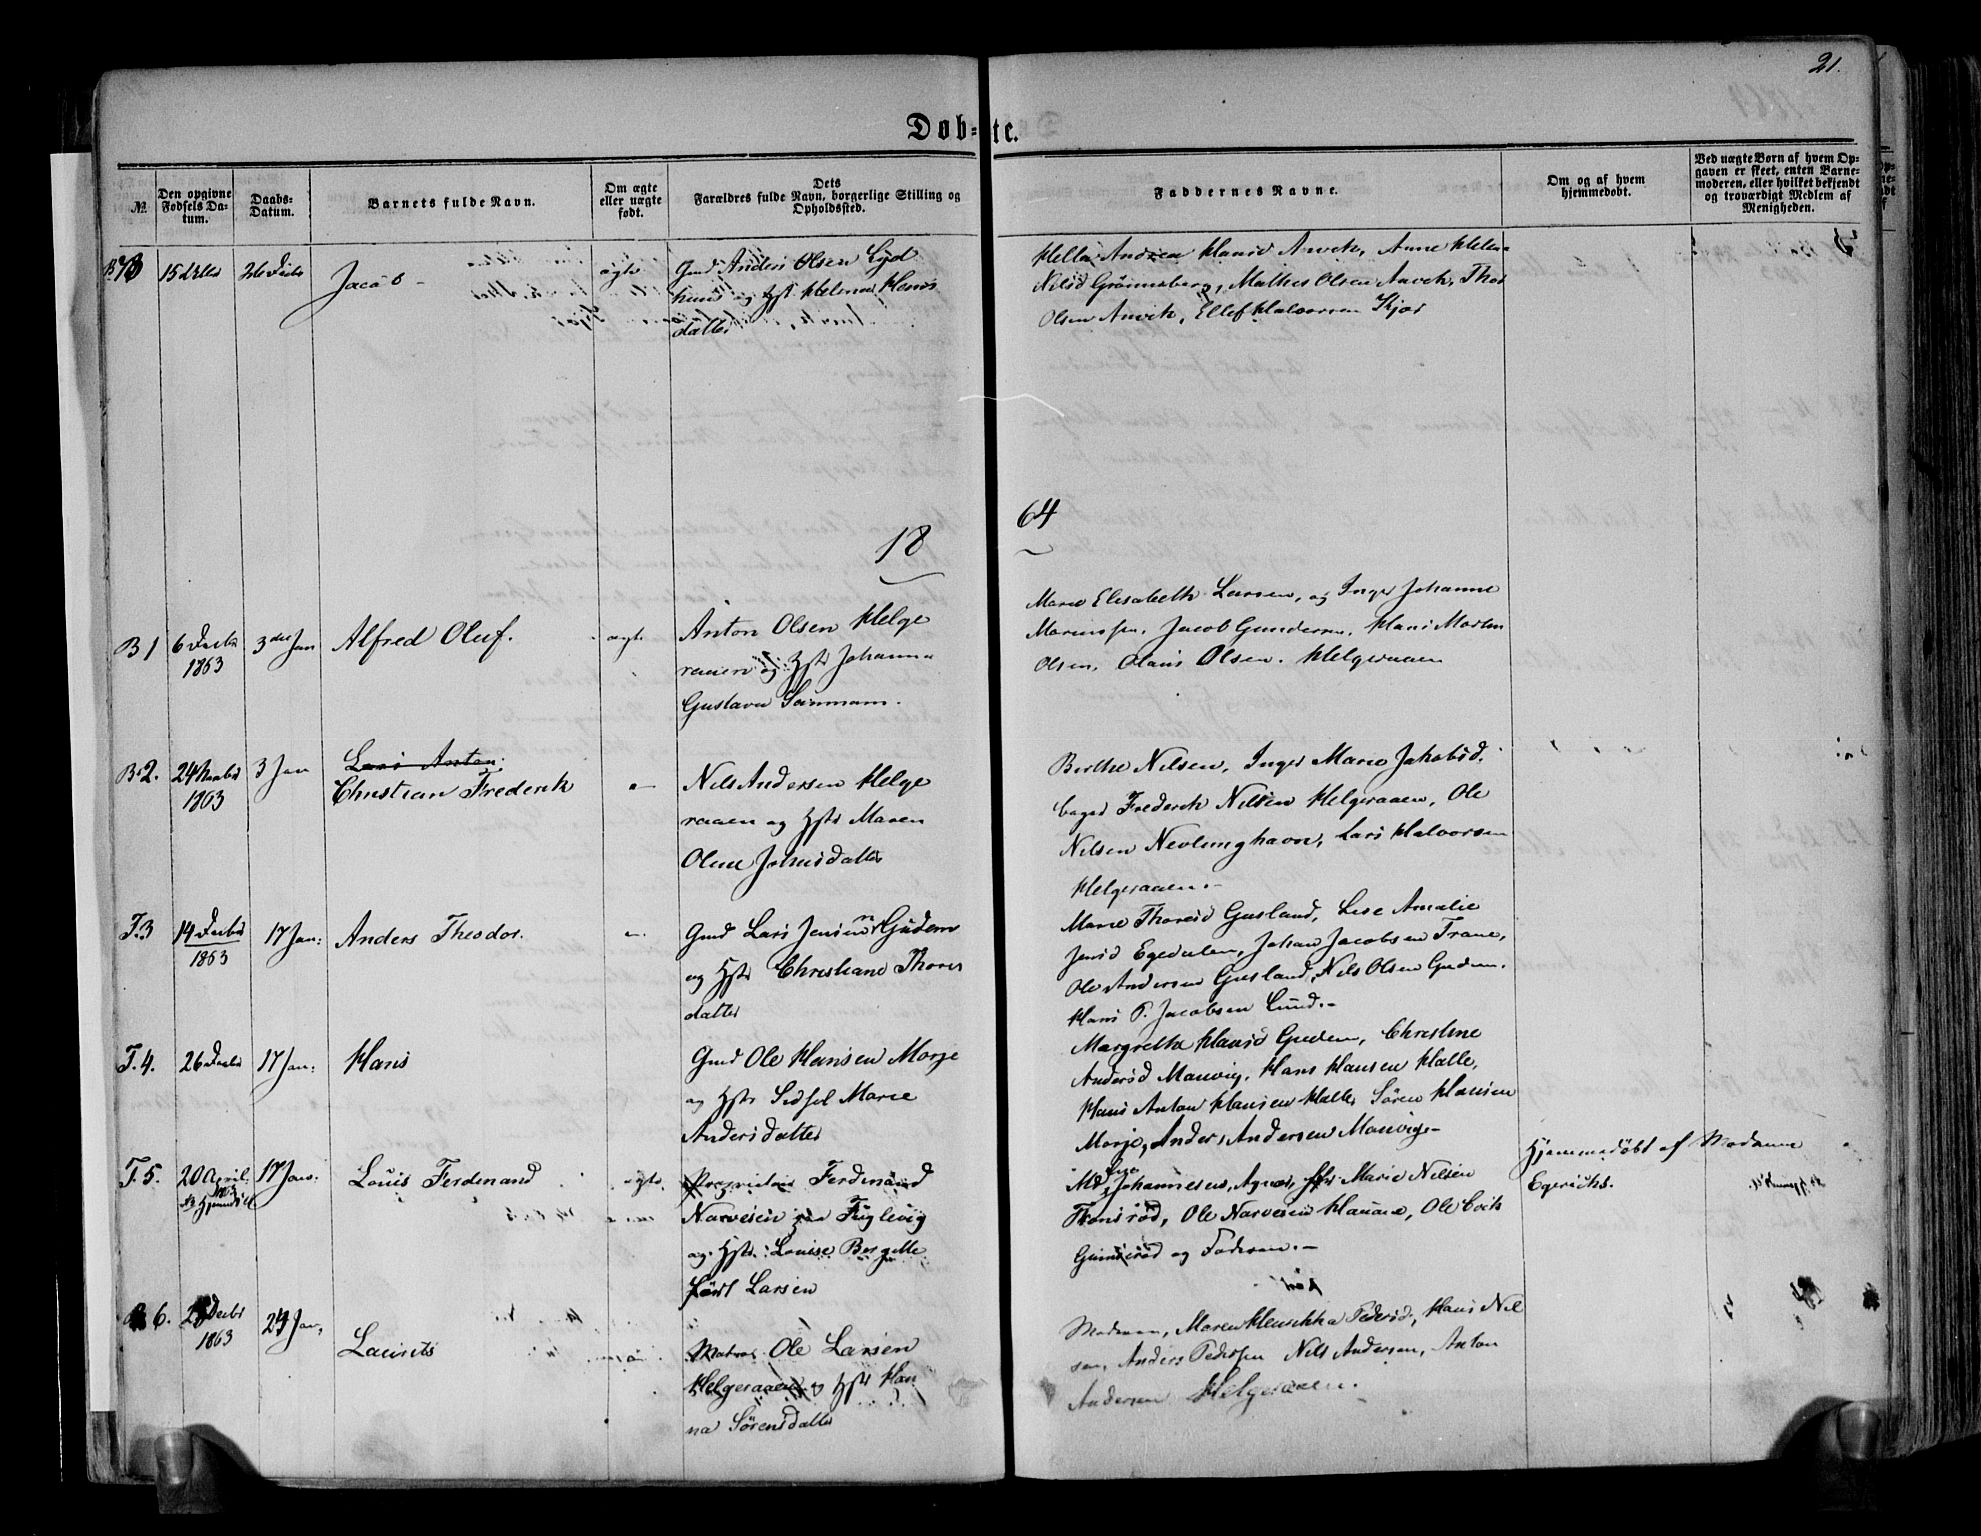 21.
Døb-te.
№
Den opgivne Fødsels Datum.
Daabs-Datum.
Barnets fulde Navn.
Om ægte eller uægte født.
Dets Forældres fulde Navn, borgerlige Stilling og Opholdssted.
Faddernes Navne.
Om og af hvem hjemmedøbt.
Ved uægte Børn af hvem Opgaven er skeet, enten Barnemoderen, eller hvilket bekjendt og troværdigt Medlem af Menigheden.
Jacob
ægte
Anders Olsen
og Helene Hans
datter
Andrea Hansd Anvik, Anne Helen
Nilsd Grönneberg, Mathis Olsen Anvik, Thor
Olsen Anvik, Ellef Halvorsen Kjær
18 64
B 1
6 Decbr 1863
3 Jan
Alfred Oluf.
ægte
Anton Olsen Helge
raaen og Hstr Johanna
Gustava
Maren Elisabeth Larsen, og Inger Johanne
Jacob Gundersen, Hans Martin
Olsen, Olaus Olsen. Helgeraaen
B 2.
24 Novbr 1863
3 Jan
Lars Anton.
Christian Frederik
Nils Andersen Helge
raaen og Hstr Maren
Oline
Berthe Nilsen, Inger Marie Jakobsd.
Frederik Nilsen Helgeraaen, Ole
Nilsen Nevlunghavn, Lars Halvorsen
Helgeraaen.
T. 3
14 Decbr 1863
17 Jan:
Anders Theodor.
Gmd Lars Jensen Gudem
og Hstr Christiane Thores
datter
Maren Thoresd Gusland, Lise Amalie
Jensd Egedalen, Johan Jacobsen Trane,
Ole Andersen Gusland, Nils Olsen Gudem.
Hans P. Jacobsen Lund.
T. 4.
26 Decbr
17 Jan:
Hans
Gmd Ole Hansen Morje
og Hstr Sidsel Marie
Andersdatter
Margrethe Hansd Gudem, Christine
Andersd Manvig, Hans Hansen Halle,
Hans Anton Hansen Halle, Sören Hansen
Morje, Anders Andersen Manvig
T. 5.
20 April.
17 Jan.
Louis Ferdinand
ægte
Proprietær Ferdinand
Narvesen paa Fuglevig
og Hstr: Louise Bergitte
född Larsen
Johannesen, Marie Nilsen
Ole Narvesen
og Faderen.
Hjemmedöbt af Madame
B 6.
Decbr 1863
24 Jan,
Laurits
Matros Ole Larsen
Helgeraaen og Hstr Han
na Sörensdatter
Madam, Maren Pedersd, Hans Nil
sen, Anders Pedersen Nils Andersen, Anton
Andersen Helgeraaen.